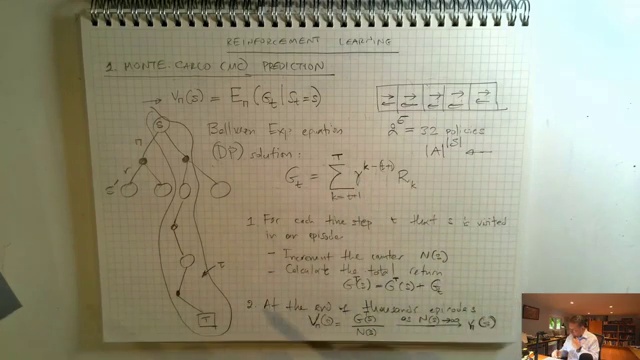 REINFORCEMENT LEARNING
1. MONTE-CARLO (MC) PREDICTION
→ Vπ(s) = Eπ(Gt | St = s)
Bellman Exp. equation
(DP) solution:
2^5 = 32 policies
|A|^|S| ←
Gt = Σ_{k=t+1}^{T} γ^{k-(t+1)} Rk
S
π
r
s'
T
τ
1 For each time step t that s is visited
in an episode
- Increment the counter N(s)
- Calculate the total return
G^T(s) = G^T(s) + Gt
2 At the end of thousands episodes
Vπ(s) = G(s) / N(s) as N(s)→∞ Vπ(s)